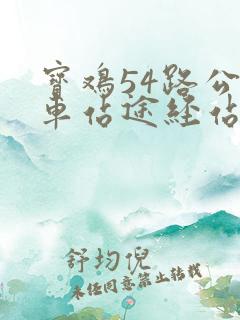 寶鸡54路公
車佔途経佔
舒均倪
未经同意禁止转载